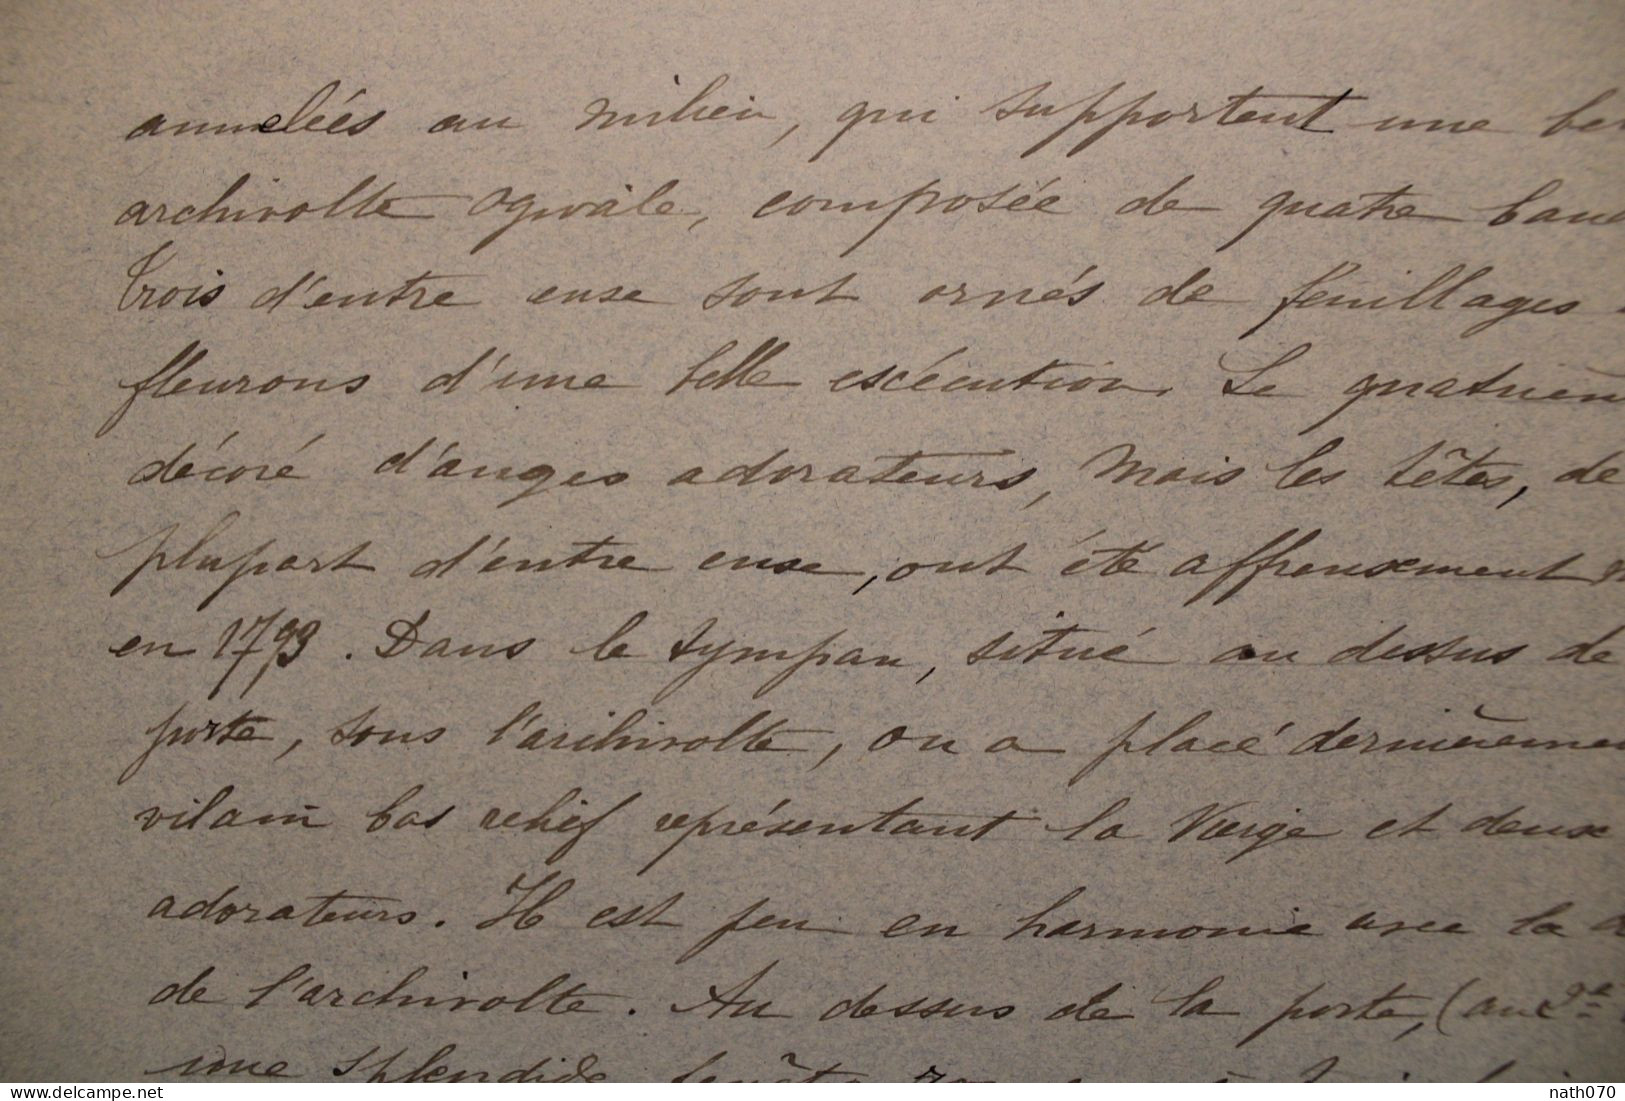 annelées au milieu, qui supportent une
archivolte ogivale, composée de quatre
Trois d'entre eux sont ornés de feuillages
fleurons d'une belle exécution. Le
décoré d'anges adorateurs, mais les têtes, de
plupart d'entre eux, ont été affreusement
en 1793. Dans le tympan, situé au dessus de
porte, sous l'archivolte, on a placé
vilain bas relief représentant la Vierge et deux
adorateurs. Il est peu en harmonie avec la
de l'archivolte. Au dessus de la porte, (au 2e
une splendide
www.delcampe.net
nath070